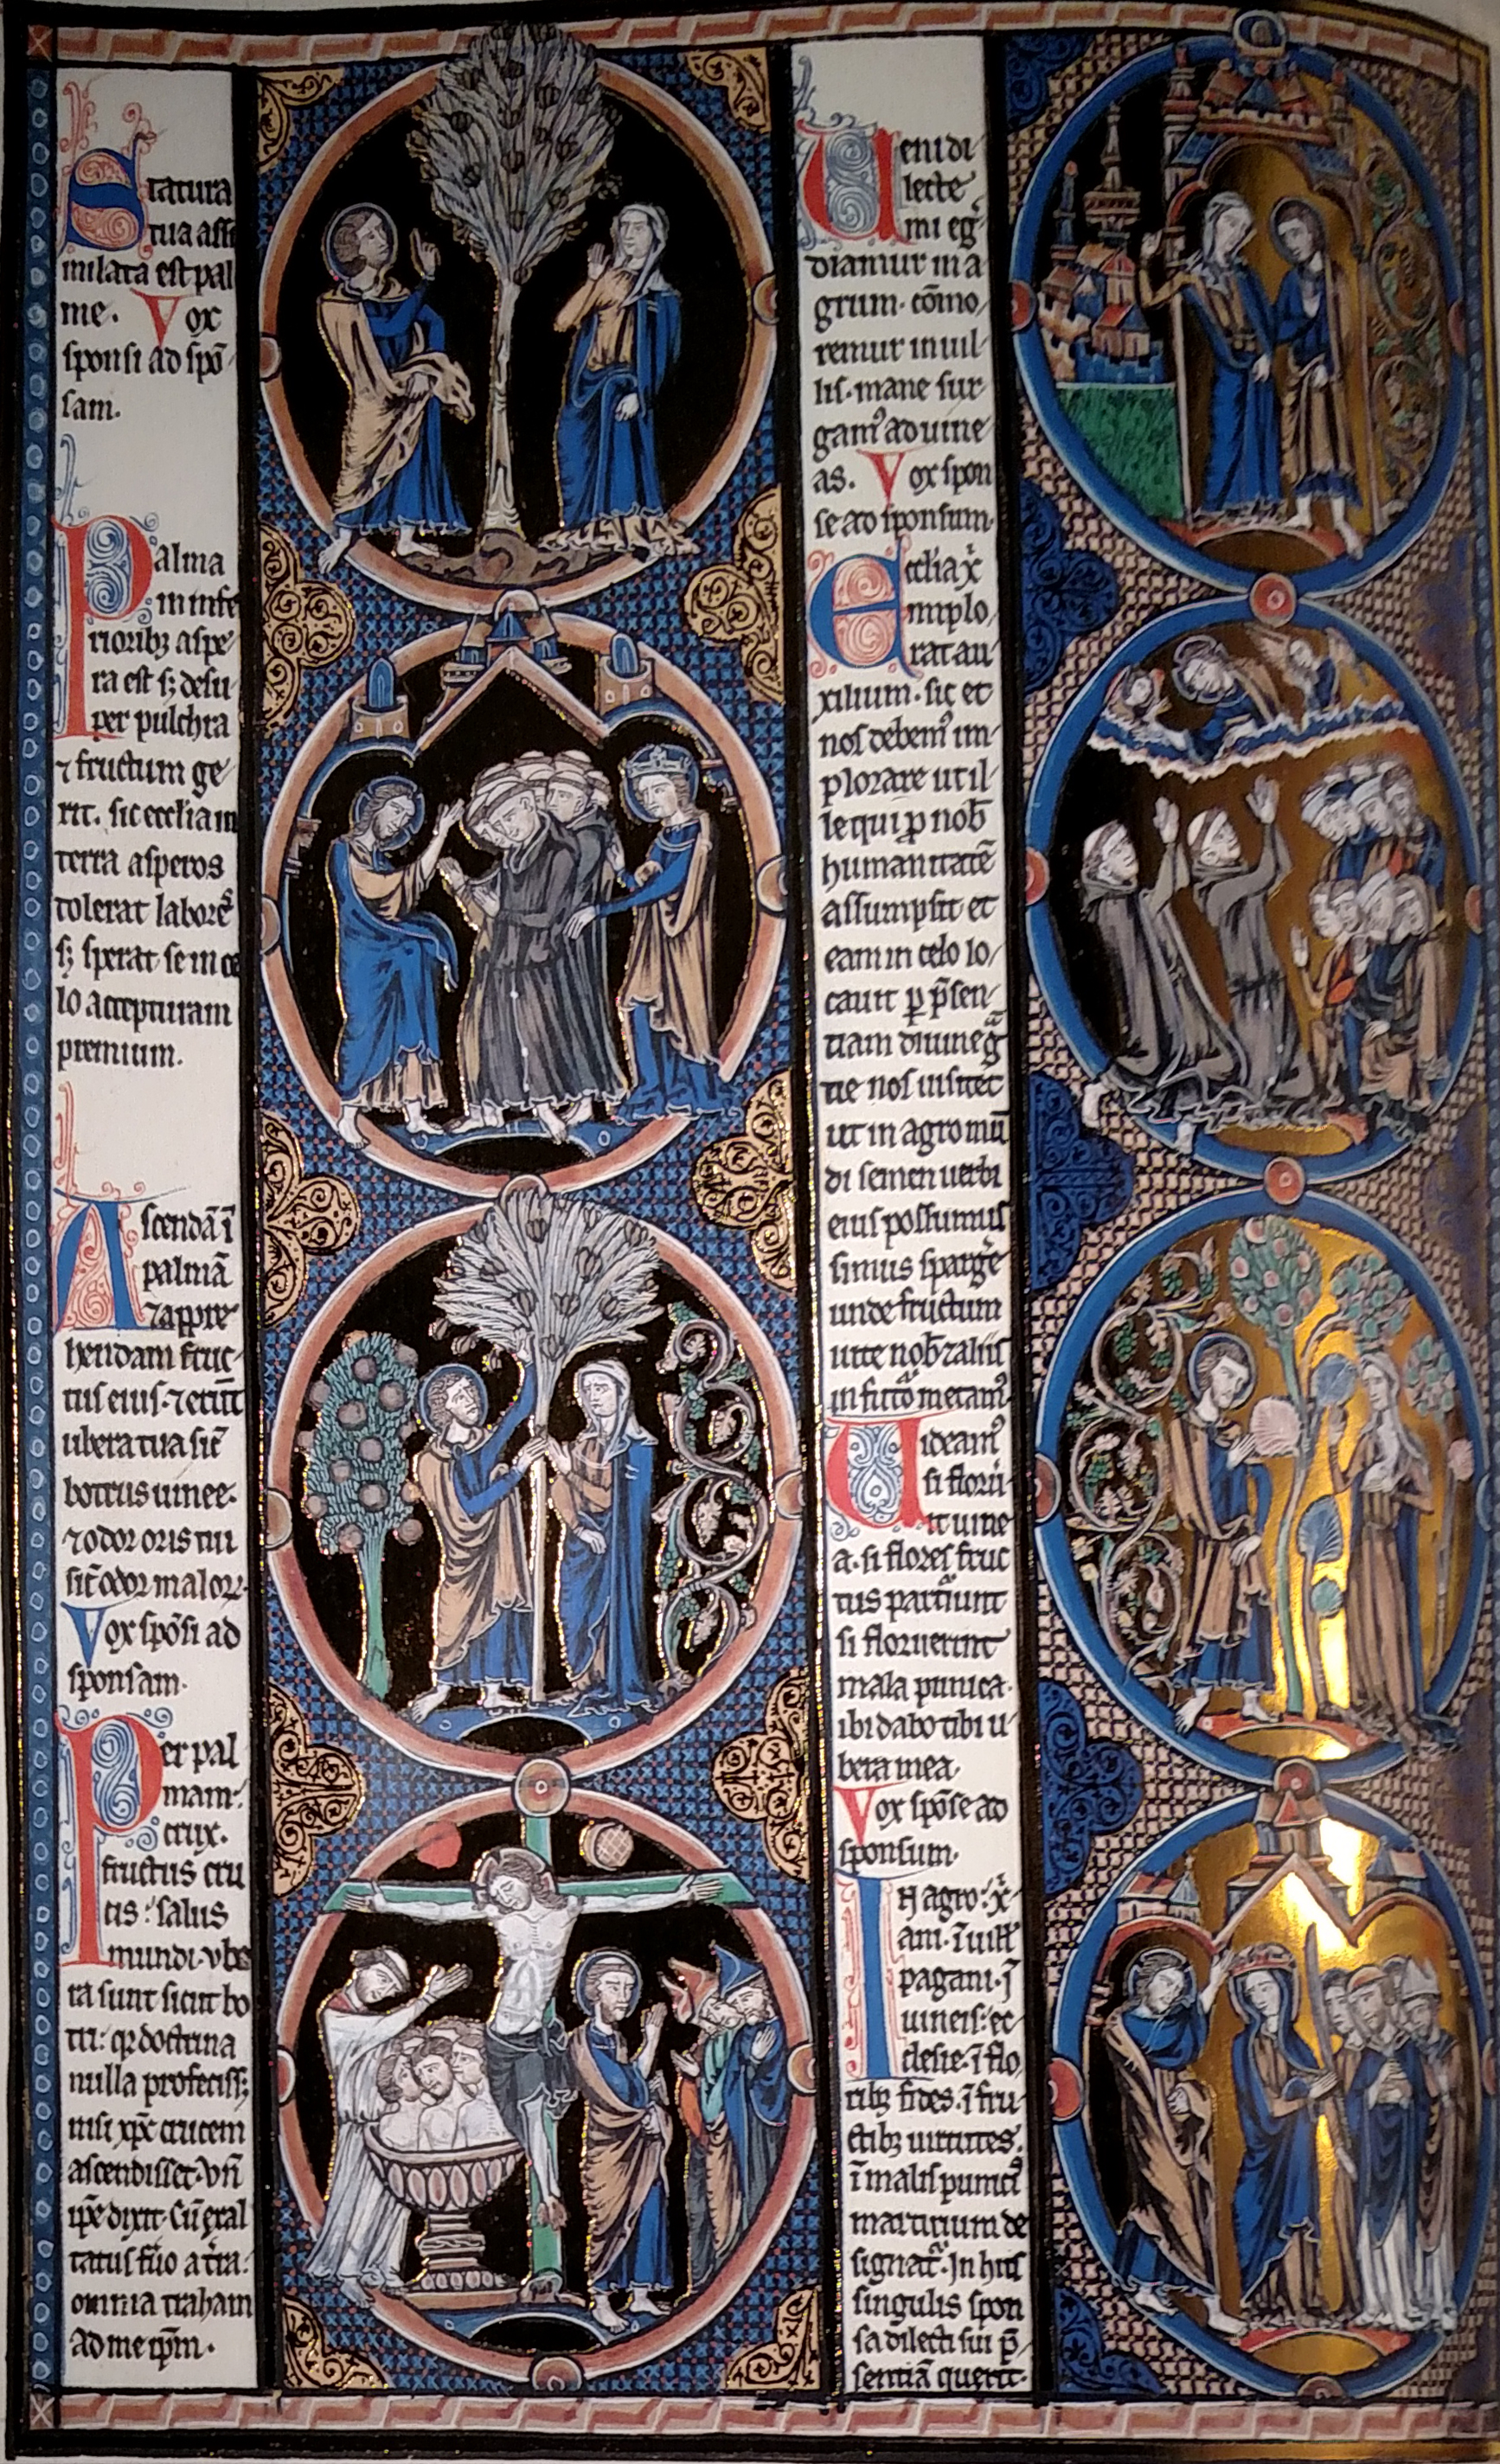 Statura
tua assi
milata est pal
me. Vox
sponsi ad spō
sam.
Palma
in infe
riorib; aspe
ra est s; desu
per pulchra
⁊ fructum ge
rit. sic ecclia in
terra asperos
tolerat labores
s; sperat se in ce
lo accepturam
premium.
Ascendā ī
palmā
⁊ appre
hendam fruc
tus eius. ⁊ erūt
ubera tua sic̄
botrus uinee.
⁊ odor oris tui
sic̄ odor maloꝝ.
Vox spōsi ad
sponsam.
Per pal
mam:
crux.
fructus cru
cis: salus
mundi. vbe
ra sunt sicut bo
tri: qꝛ doctrina
nulla profecisset
nisi xp̄c crucem
ascendisset. vn̄
ip̄e dixit. Cū exal
tatus fuo a tͬra.
omnia traham
ad me ip̄m.
Ueni di
lecte
mi eg
diamur in a
grum. cōmo
remur in uil
lis. mane sur
gamꝰ ad uine
as. Vox spon
se ad sponsum.
Ecclia xͥ
implo
rat au
xilium. sic et
nos debemꝰ im
plorare ut il
le qui ꝓ nob̄
humanitatē
assumpsit et
eam in celo lo
cauit ꝑ p̄sen
tiam diuine gͣ
tie nos uisitet
ut in agro mū
di semen uerbi
eius possumus
simus sparge
unde fructum
uite nob̄ ⁊ aliis
in futͦo metamꝰ.
Uideamꝰ
si floru
it uine
a. si flores fruc
tus parturiunt
si floruerint
mala punica.
ibi dabo tibi u
bera mea.
Vox spōse ad
sponsum.
In agro: xͥ
ani. ī uill
pagani. ī
uineis: ec
clesie. ī flo
rib; fides. ī fru
ctib; uirtutes.
ī malis punicͥ
martirium de
signatͬ. In hiis
singulis spon
sa dilecti sui p̄
sentiā querit.